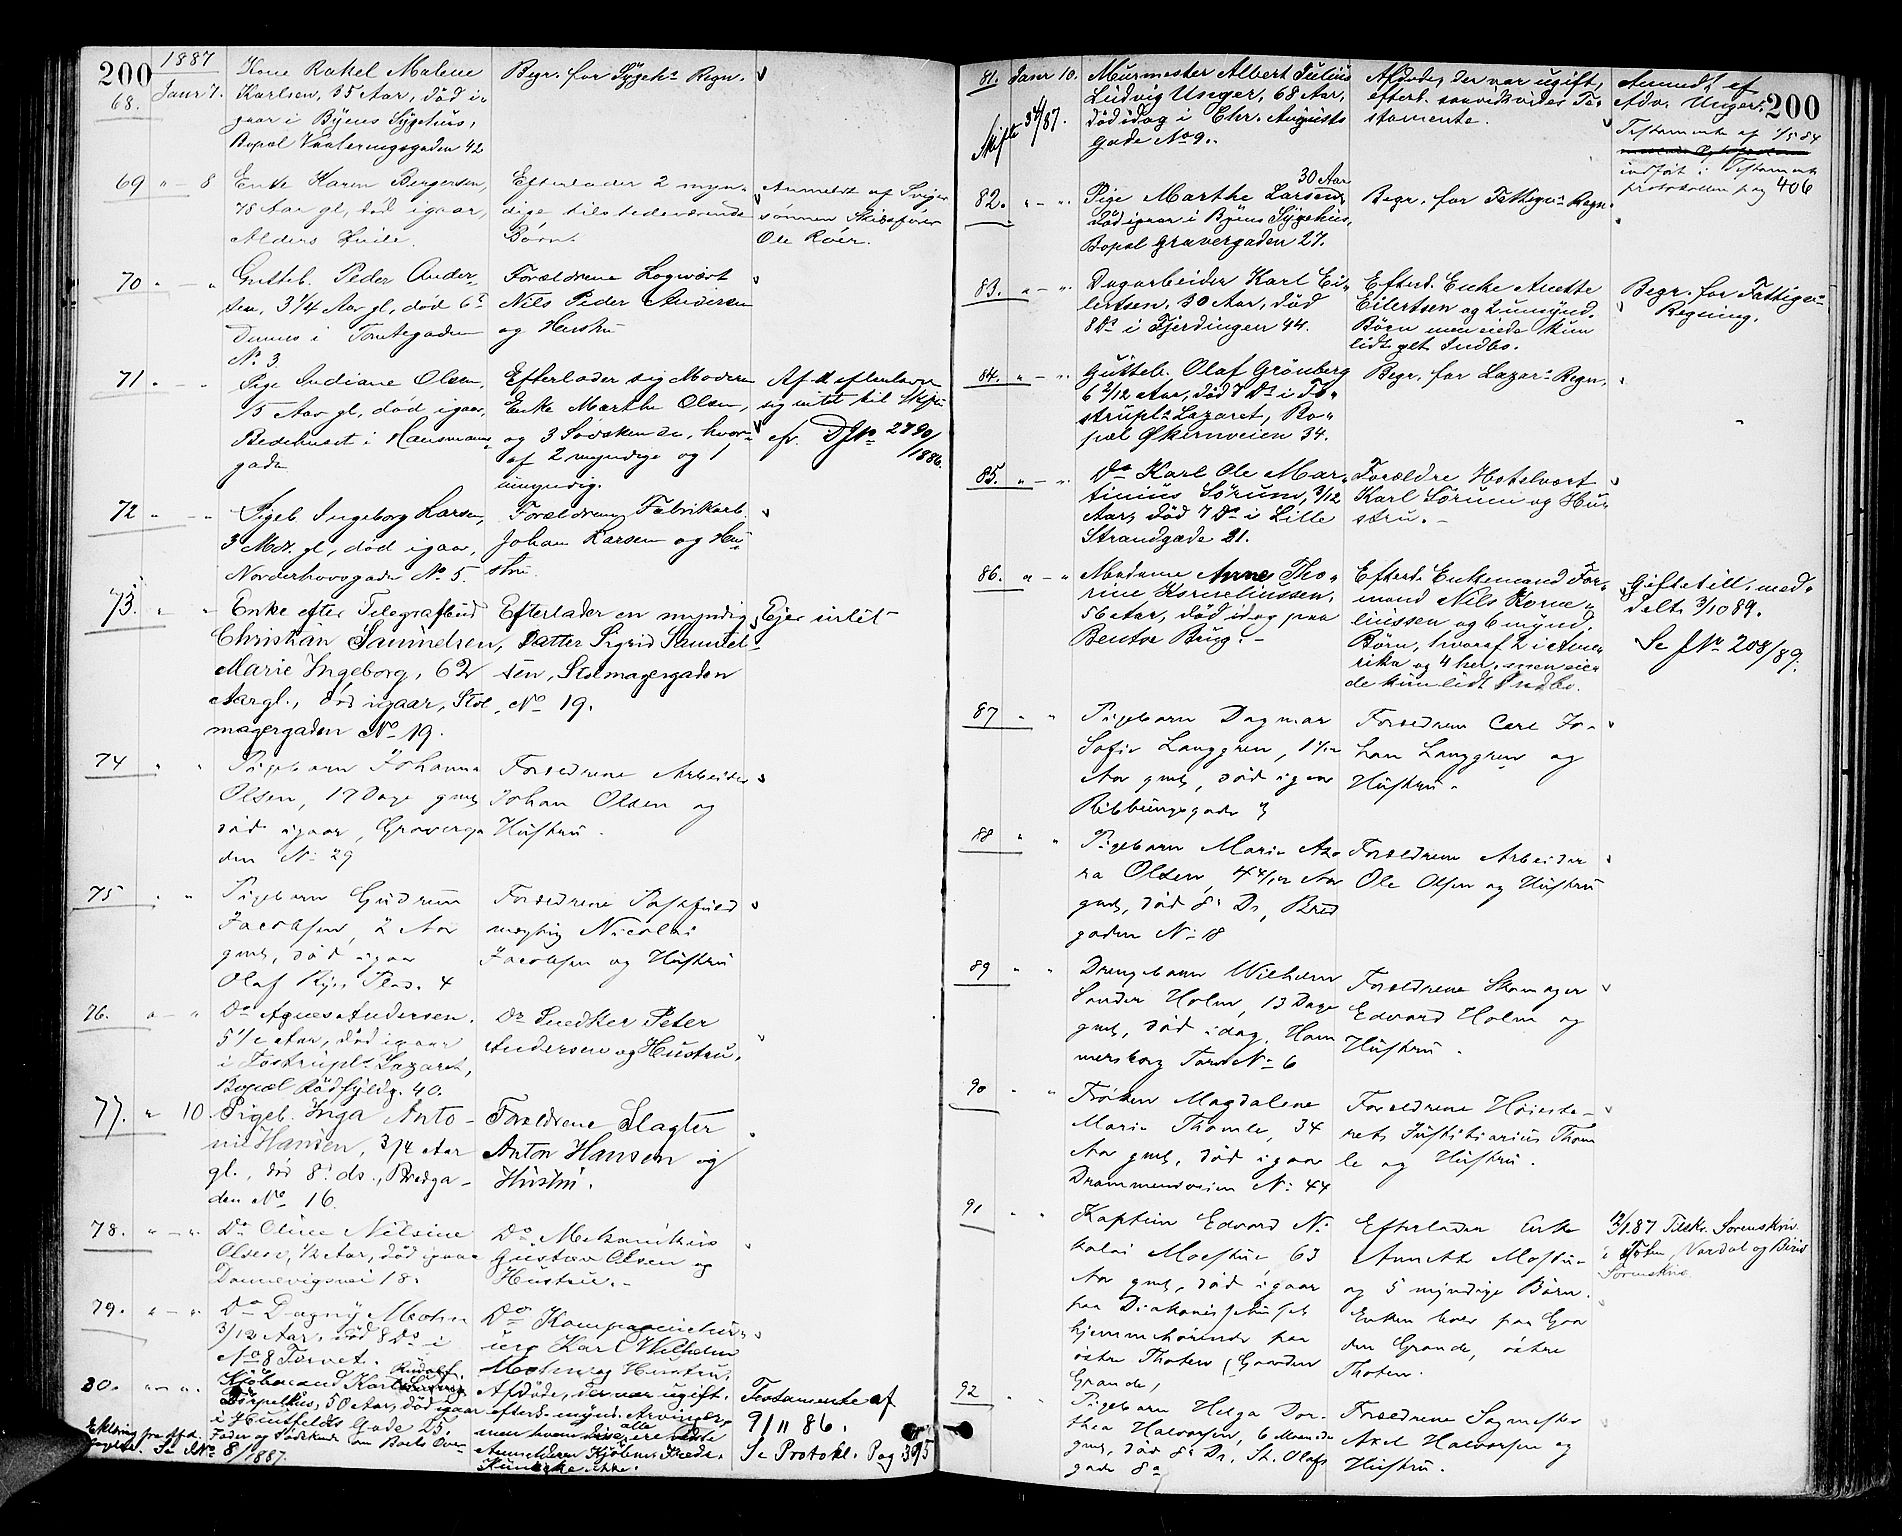 200
1887
68.
Janr 7.
Kone Rakel Malene
Karlsen, 35 Aar, död i-
gaar i Byens Sygehus,
Bopæl Vaaleringsgaden 42
Begr. for Sygehs Regn.
69 " - 8
Enke Karen Bergersen,
78 Aar gl, död igaar,
Alders Hvile.
Efterlader 2 myn-
dige tilstedeværende
Börn.
Anmeldt af Sviger
sönnen Skibsförer
Ole Röer.
70 " - "
Gutteb. Peder Ander-
sen, 3 1/4 Aar gl, död 6s
Dennes i Tomtegaden
No 3
Forældrene Logivært
Nils Peder Andersen
og Hustru
71 " - "
Pige Indiane Olsen,
15 Aar gl, död igaar,
Bedehuset i Hausmanns
gade
Efterlader sig Moderen
Enke Marthe Olsen,
og 3 Södskende, hvor-
af 2 myndige og 1
umyndig.
Afdöde efterlader
sig intet til Skifte
cfr. DJNo 2790/
1886.
72 " "
Pigeb Ingeborg Larsen,
3 Mdr. gl, död igaar,
Norderhovsgade No 5.
Forældrene Fabrikarb.
Johan Larsen og Hu-
stru.
73. " "
Enke efter Telegrafbud
Christian Samuelsen,
Marie Ingeborg, 62
Aar gl., död igaar, Stol
magergaden No 19.
Efterlader en myndig
Datter Sigrid Samuel-
sen, Stolmagergaden
No 19.
Ejer intet
74 " "
Pigebarn Johanna
Olsen, 17 Dage gml
död igaar, Graverga
den No 29
Forældrene Arbeider
Johan Olsen og
Hustru.
75 " "
Pigebarn Gudrun
Jacobsen, 2 Aar
gml, död igaar
Olaf Ryes Plads 4
Forældrene Postfuld
mægtig Nicolai
Jacobsen og Hustru
76. " - "
Do Agnes Andersen.
5 1/2 Aar, död igaar
i Tostrupls Lazaret,
Bopæl Rödfyldg. 40.
Do Snedker Peter
Andersen og Hustru.
77. " 10
Pigeb. Inga Anto-
nie Hansen, 3/4 Aar
gl., död 8' ds., Bredga-
den No 16.
Forældrene Slagter
Anton Hansen og
Hustru.
78. " - "
Do Oline Nilsine
Olsen, 1/2 Aar, död igaar
Dannevigsvei 18.
Do Mekanikus
Gustav Olsen og
Hustru.-
79. " - "
Do Dagny Mohn
3/12 Aar, död 8 Ds i
No 8 Torvet.
Do Kompagnichir-
urg Karl Wilhelm
Mohn og Hustru.
80. " - "
Kjöbmand Karl Rudolf
Dörpelkus, 50 Aar, död igaar
i Huitfeldts Gade 25.
Afdöde, der var ugift,
efterl. mynd. Arvinger,
Anmelderen Kjöbm. Fredr.
Testamente af
9/11 86.
Se Protokl. Pag 395
Se JNo 8/1887.
200
81. Janr 10.
Skifte 3/1 87.
Murmester Albert Julius
Ludvig Unger, 68 Aar,
död idag i Chr. Augusts
gade No 9.
Afdöde, der var ugift,
efterl. saavidvides Te-
stamente.
Anmeldt af
Adv. Unger.
Testamente af 1/5 84
indfört i Testament
protokollen pag 406
82. " - "
30 Aar
Pige Marthe Larsen,
död igaar i Byens Sygehus,
Bopæl Gravergaden 27.
Begr. for Fattigvs Regn.
83. " - "
Dagarbeider Karl Ei-
lertsen, 30 Aar, död
8 Ds i Fjerdingen 44.
Efterl. Enke Anette
Eilertsen og 2 umynd.
Börn men eiede kun
lidt get Indbo.
Begr. for Fattigvs
Regning.
84. " - "
Gutteb. Olaf Grönberg
6 2/12 Aar, död 7 Ds i To-
strupls Lazaret, Bo-
pæl Økernveien 34.
Begr. for Lazars Regn.
85. " - "
Do Karl Ole Mar-
tinius Sörum, 3/12
Aar, död 7 Ds i Lille
Strandgade 21.
Forældre Hotelvært
Karl Sörum og Hu-
stru.-
86. " - "
Madame Anne Tho-
rine Korneliussen,
56 Aar, död idag paa
Bentse Brug.-
Efterl. Enkemand For-
mand Nils Korne-
liussen og 6 mynd.
Börn, hvoraf 2 i Ame-
rika og 4 her, men eie-
de kun lidt Indbo.
Giftetill. med-
delt 3/10 89.
Se JNo 208/89.
87 " "
Pigebarn Dagmar
Sofie Langgren, 1 1/12
Aar gml, död igaar
Ribbungsgade 3
Forældrene Carl Jo-
han Langgren og
Hustru.
88 " "
Pigebarn Marie Aso
ra Olsen, 4 4/12 Aar
gml, död 8' Ds, Bred
gaden No 18
Forældrene Arbeider
Ole Olsen og Hustru
89 " "
Drengebarn Wilhelm
Sander Holm, 13 Dage
gml, död idag, Ham
mersborg Torv No 6
Forældrene Skomager
Edvard Holm og
Hustru.
90 " "
Fröken Magdalene
Marie Thomle, 34
Aar gml, död igaar
Drammensveien No 44
Forældrene Höieste-
rets Justitiarius Thom
le og Hustru.
91 " "
Kaptein Edvard Ni-
kolai Moestue, 63
Aar gml, död igaar
paa Diakonissehuset
hjemmehörende paa
östre Thoten (Gaarden
Grande,
Efterlader Enke
Annette Mostu-
og 5 myndige Börn.
Enken boer paa Gaar
den Grande, östre
Thoten.
12/1 87 Tilskr. Sorenskriv.
i Toten, Vardal og Biri
Sorenskriv.
92 "
Pigebarn Helga Dor-
thea Halvorsen, 6 Maaneder
gml, död 8' Ds, St. Olafs
gade 8a
Forældrene Sagmester
Axel Halvorsen og
Hustru.